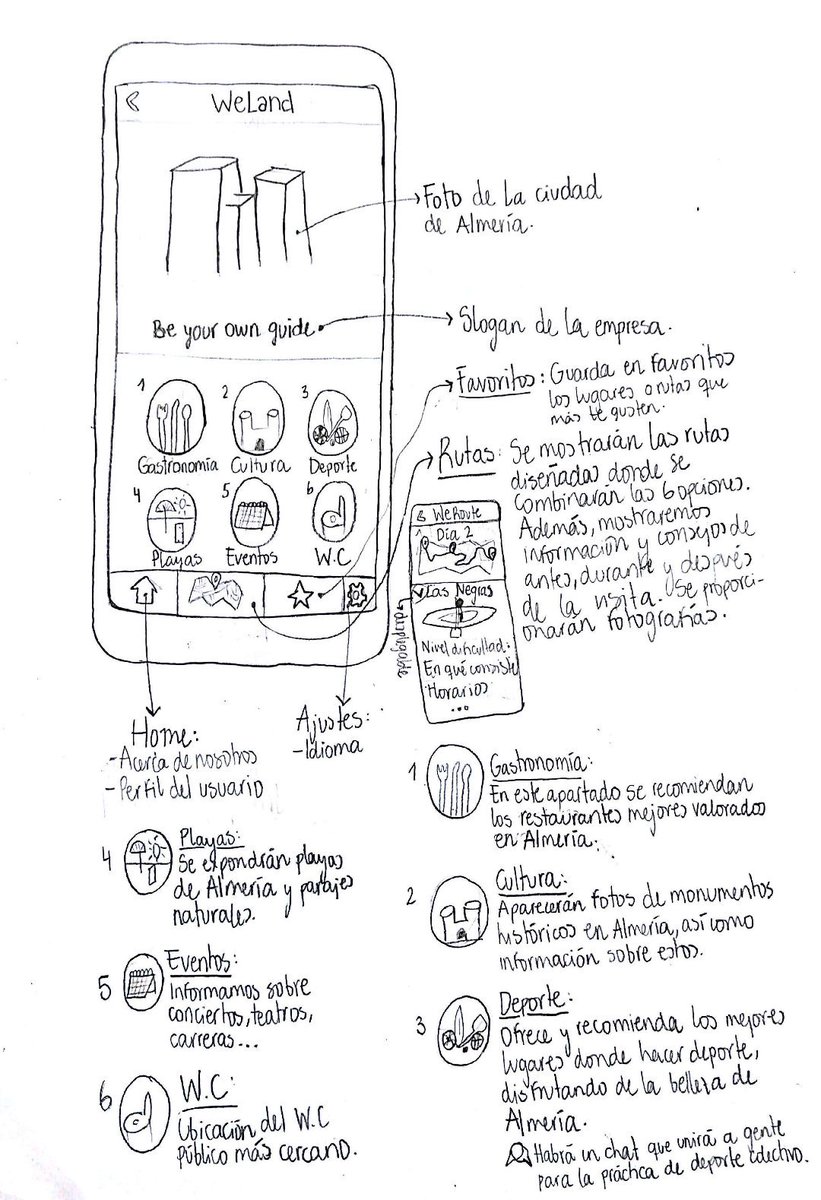 WeLand
Foto de la ciudad
de Almería.
Be your own guide
Slogan de la empresa.
Favoritos: Guarda en favoritos
los lugares o rutas que
más te gusten.
Rutas: Se mostrarán las rutas
diseñadas donde se
combinarán las 6 opciones.
Además, mostraremos
información y consejos de
antes, durante y después
de la visita. Se proporci-
onarán fotografías.
1
Gastronomía
2
Cultura
3
Deporte
4
Playas
5
Eventos
6
W.C
WeRoute
Día 2
Las Negras
Nivel dificultad:
En qué consiste
Horarios
...
desplegable
Home:
- Acerca de nosotros
- Perfil del usuario
Ajustes:
- Idioma
1
Gastronomía:
En este apartado se recomiendan
los restaurantes mejores valorados
en Almería.
2
Cultura:
Aparecerán fotos de monumentos
históricos en Almería, así como
información sobre estos.
3
Deporte:
Ofrece y recomienda los mejores
lugares donde hacer deporte,
disfrutando de la belleza de
Almería.
Habrá un chat que unirá a gente
para la práctica de deporte colectivo.
4
Playas:
Se expondrán playas
de Almería y parajes
naturales.
5
Eventos:
Informamos sobre
conciertos, teatros,
carreras...
6
W.C:
Ubicación del W.C
público más cercano.